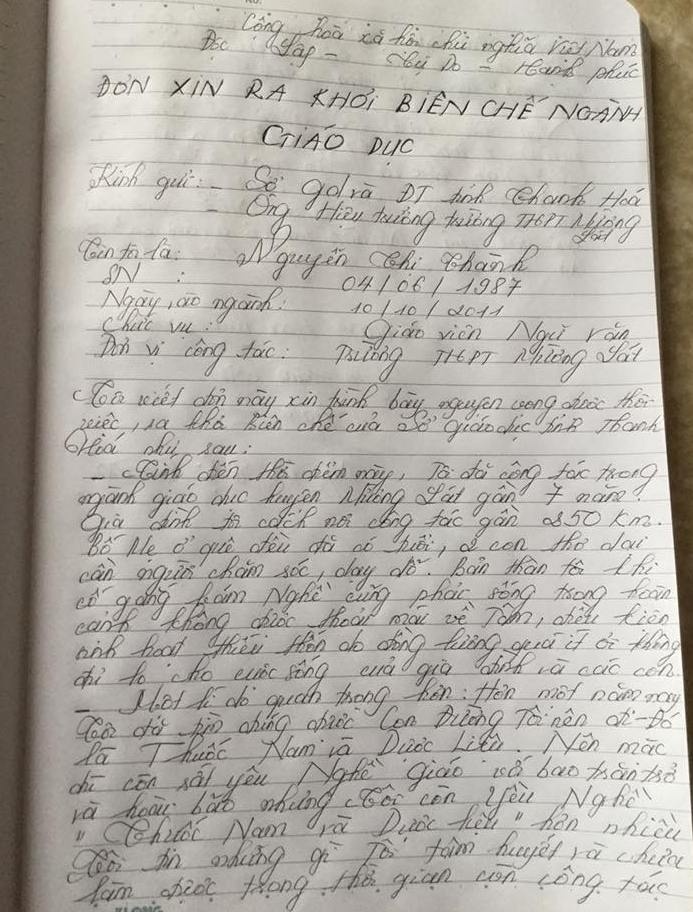 Cộng hoà xã hội chủ nghĩa Việt Nam
Độc lập - Tự Do - Hạnh phúc
ĐƠN XIN RA KHỎI BIÊN CHẾ NGÀNH
GIÁO DỤC
Kính gửi: - Sở gd và ĐT tỉnh Thanh Hoá
- Ông Hiệu trưởng trường THPT Mường Lát
Tên tôi là: Nguyễn Thị Thành
SN : 04/06/1987
Ngày vào ngành: 10/10/2011
Chức vụ: Giáo viên Ngữ văn
Đơn vị công tác: Trường THPT Mường Lát
Tôi viết đơn này xin trình bày nguyện vọng được thôi
việc, ra khỏi Biên chế của Sở giáo dục tỉnh Thanh
Hoá như sau:
- Tính đến thời điểm này, Tôi đã công tác trong
ngành giáo dục huyện Mường Lát gần 7 năm.
Gia đình tôi cách nơi công tác gần 250 km.
Bố Mẹ ở quê đều đã có tuổi, 2 con thơ dại
cần người chăm sóc, dạy dỗ. Bản thân tôi khi
cố gắng bám Nghề cũng phải sống trong hoàn
cảnh không được thoải mái về Tâm, điều kiện
sinh hoạt thiếu thốn do đồng lương quá ít ỏi không
đủ lo cho cuộc sống của gia đình và các con.
- Một lí do quan trọng hơn: Hơn một năm nay
Tôi đã tìm được Con Đường Tôi nên đi - Đó
là Thuốc Nam và Dược Liệu. Nên mặc
dù còn rất yêu Nghề giáo với bao trăn trở
và hoài bão nhưng Tôi còn yêu Nghề
" Thuốc Nam và Dược liệu " hơn nhiều
Tôi tin những gì Tôi tâm huyết và chưa
làm được trong thời gian còn công tác